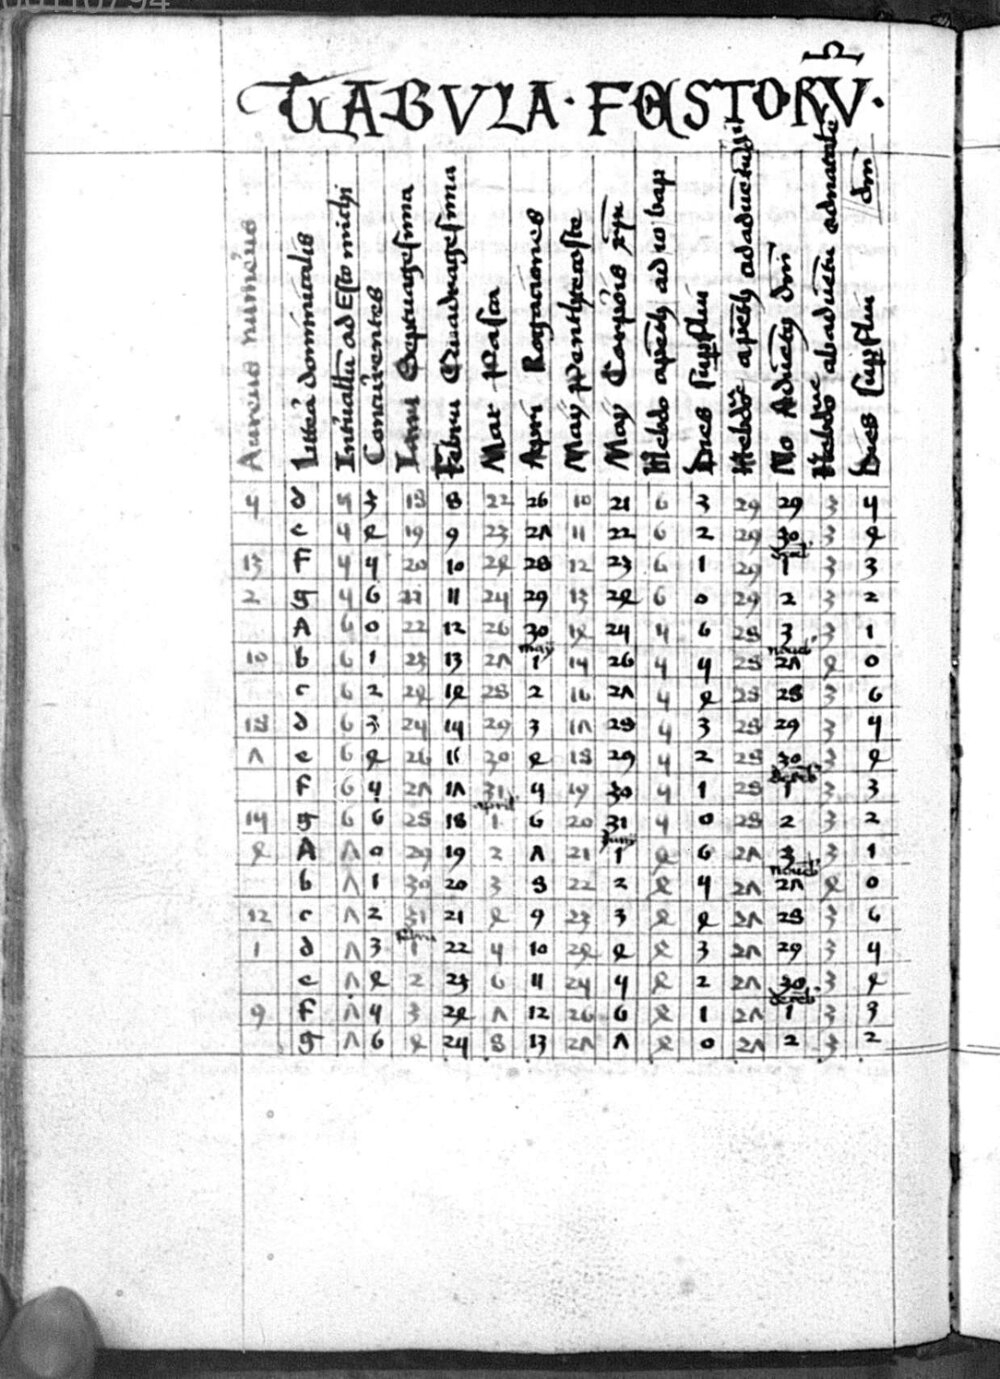 TABVLA · FESTORV ·
Aureus numerus
Littera dominicalis
Intervallu ad Esto michi
Concurrentes
Ianu Septuagesima
Februa Quadragesima
Mar Pasca
April Rogaciones
May Penthecoste
May Corporis xpi
Hebdo apenth ad io bap
Dies supflui
Hebdoe apenth ad aductu dni
No Aduentg dni
Hebdoe ab aduētu adnatale dni
Dies supflui
5 d 5 3 18 8 22 26 10 21 6 3 29 29 3 5
e 5 4 19 9 23 27 11 22 6 2 29 30 3 4
13 F 5 5 20 10 24 28 12 23 6 1 29 1 3 3
2 g 5 6 21 11 25 29 13 24 6 0 29 2 3 2
A 6 0 22 12 26 30 14 25 5 6 28 3 3 1
may noueb
10 b 6 1 23 13 27 1 15 26 5 5 28 27 4 0
c 6 2 24 14 28 2 16 27 5 4 28 28 3 6
18 d 6 3 25 15 29 3 17 28 5 3 28 29 3 5
7 e 6 4 26 16 30 4 18 29 5 2 28 30 3 4
deceb
F 6 5 27 17 31 5 19 30 5 1 28 1 3 3
april
15 g 6 6 28 18 1 6 20 31 5 0 28 2 3 2
Juny
4 A 7 0 29 19 2 7 21 1 4 6 27 3 3 1
noueb
b 7 1 30 20 3 8 22 2 4 5 27 27 4 0
12 c 7 2 31 21 4 9 23 3 4 4 27 28 3 6
februa
1 d 7 3 1 22 5 10 24 4 4 3 27 29 3 5
e 7 4 2 23 6 11 25 5 4 2 27 30 3 4
deceb
9 F 7 5 3 24 7 12 26 6 4 1 27 1 3 3
g 7 6 4 25 8 13 27 7 4 0 27 2 3 2